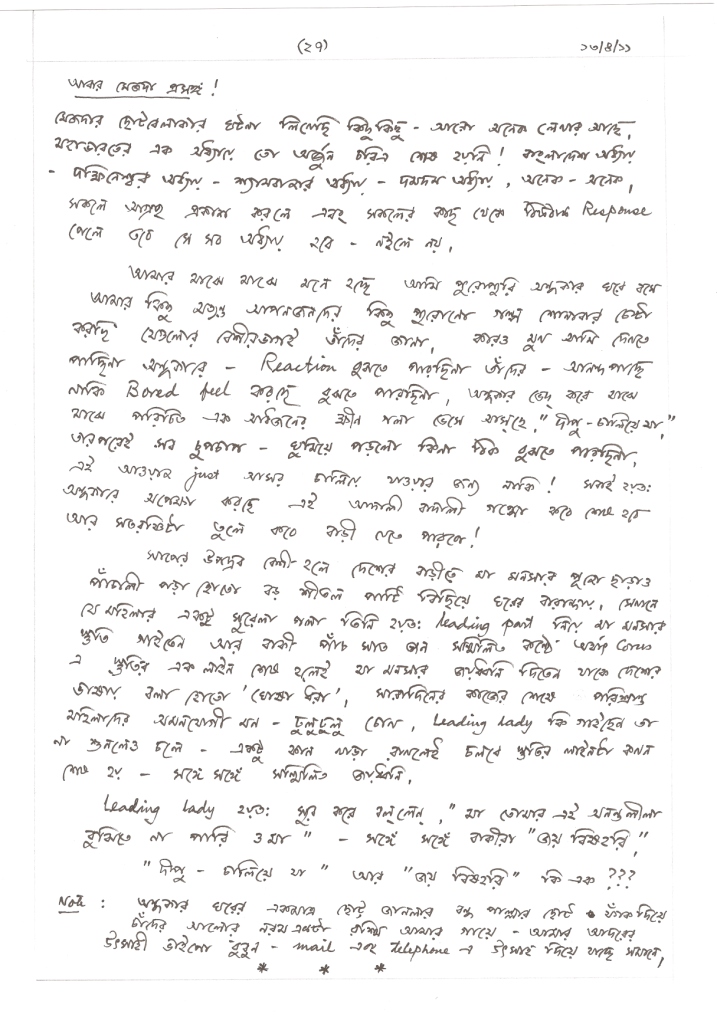 (২৭) ১৩/৪/১১
আবার মেজদা প্রসঙ্গ !
মেজদার ছোটবেলাকার ঘটনা লিখেছি কিছু কিছু - আরো অনেক লেখার আছে,
মহাভারতের এক অধ্যায়ে তো অর্জুন চরিত্র শেষ হয়নি ! বাংলাদেশ অধ্যায়
- দক্ষিনেশ্বর অধ্যায় - শ্যামবাজার অধ্যায় - দমদম অধ্যায়, অনেক - অনেক,
সকলে আগ্রহ প্রকাশ করলে এবং সকলের কাছ থেকে Response
পেলে তবে সে সব অধ্যায় হবে - নইলে নয়,
আমার মাঝে মাঝে মনে হচ্ছে আমি পুরোপুরি অন্ধকার ঘরে বসে
আমার কিছু আপনজনদের কিছু পুরোনো গল্প শোনাবার চেষ্টা
করছি যেগুলোর বেশীরভাগই তাঁদের জানা, কারও মুখ আমি দেখতে
পাচ্ছিনা অন্ধকারে - Reaction বুঝতে পারছিনা তাঁদের - আনন্দ পাচ্ছে
নাকি Bored feel করছে বুঝতে পারছিনা, অন্ধকার ভেদ করে মাঝে
মাঝে পরিচিত এক আধজনের ক্ষীন গলা ভেসে আসছে, "দীপু - চালিয়ে যা,"
তারপরেই সব চুপচাপ - ঘুমিয়ে পড়লো কিনা ঠিক বুঝতে পারছিনা,
এই আওয়াজ just আসর চালিয়ে যাওয়ার জন্য নাকি ! সবাই হয়ত:
অন্ধকারে অপেক্ষা করছে এই গপ্পো কবে শেষ হবে
আর সতরঞ্চিটা তুলে কবে বাড়ী যেতে পারবে !
সাপের উপদ্রব বেশী হলে দেশের বাড়ীতে মা মনসার পূজো ছাড়াও
পাঁচালী পড়া হোতো বড় শীতল পাটি বিছিয়ে ঘরের বারান্দায়, সেখানে
যে মহিলার একটু সুরেলা গলা তিনি হয়ত: leading part নিয়ে মা মনসার
স্তুতি গাইতেন আর বাকী পাঁচ সাত জন সম্মিলিত কন্ঠে অর্থাৎ Corus
এ স্তুতির এক লাইন শেষ হলেই মা মনসার জয়ধ্বনি দিতেন যাকে দেশের
ভাষায় বলা হোতো 'ঘোষা ধরা', সারাদিনের কাজের শেষে পরিশ্রান্ত
মহিলাদের অমনযোগী মন - ঢুলুঢুলু চোখ, Leading lady কি গাইছেন তা
না শুনলেও চলে - একটু কান খাড়া রাখলেই চলবে স্তুতির লাইনটা কখন
শেষ হয় - সঙ্গে সঙ্গে সম্মিলিত জয়ধ্বনি,
Leading lady হয়ত: সুর করে বললেন, "মা তোমার এই অনন্তলীলা
বুঝিতে না পারি ও মা" - সঙ্গে সঙ্গে বাকীরা "জয় বিষহরি,"
"দীপু - চালিয়ে যা" আর "জয় বিষহরি" কি এক ???
Note : অন্ধকার ঘরের একমাত্র ছোট্ট জানলার বন্ধ পাল্লার ছোট ফাঁক দিয়ে
চাঁদের আলোর নরম একটা রশ্মি আমার গায়ে - আমার আদরের
উৎসাহী ভাইপো বুবুন - mail এবং telephone এ উৎসাহ দিয়ে যাচ্ছে সমানে,
* * *